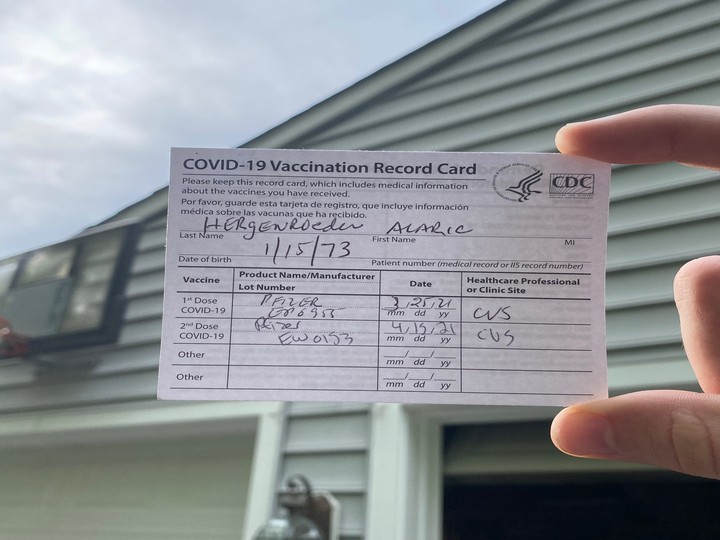 COVID-19 Vaccination Record Card
Please keep this record card, which includes medical information
about the vaccines you have received.
Por favor, guarde esta tarjeta de registro, que incluye información
médica sobre las vacunas que ha recibido.
CDC
HERgENRoeder ALARIC
Last Name First Name MI
1/15/73
Date of birth Patient number (medical record or IIS record number)
Vaccine Product Name/Manufacturer Date Healthcare Professional
Lot Number or Clinic Site
1st Dose PFIZER CVS
COVID-19 mm dd yy
2nd Dose Pfizer 4,15,21 CVS
COVID-19 EW0153 mm dd yy
Other
mm dd yy
Other
mm dd yy